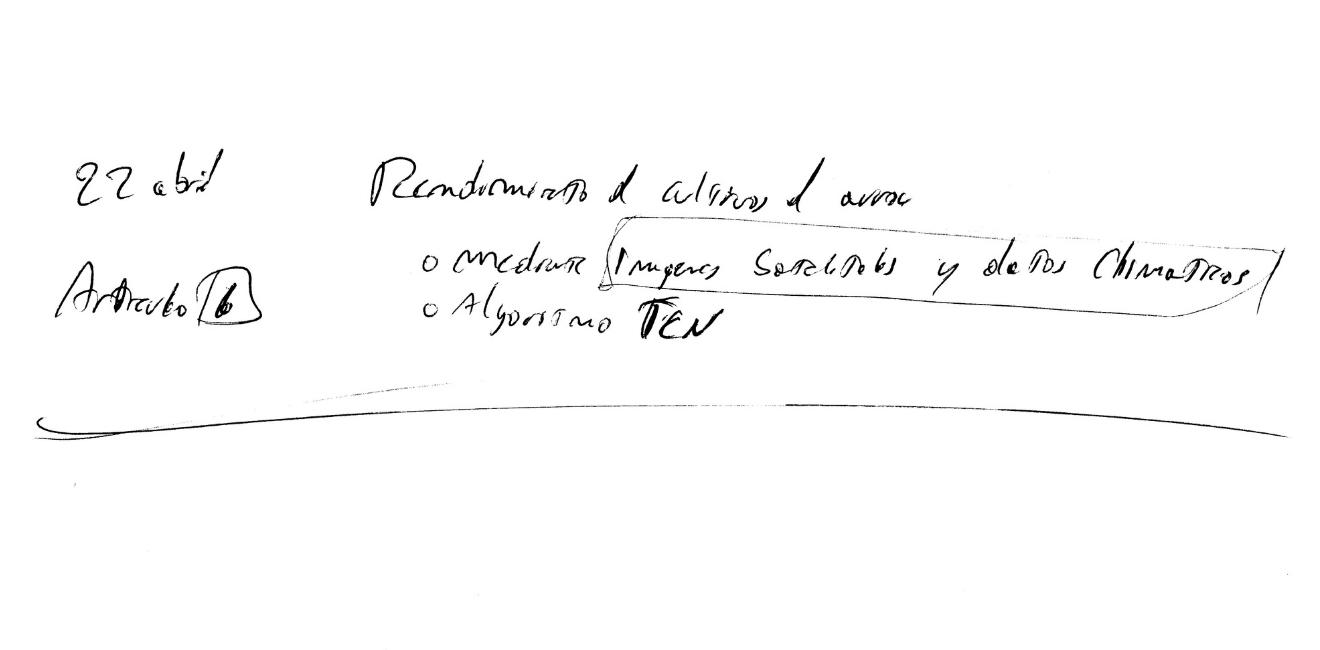 22 abril
Rendimiento d cultivos d arroz
o mediante Imagenes Satelitales y datos Climaticos
Articulo 6
o Algoritmo TEN